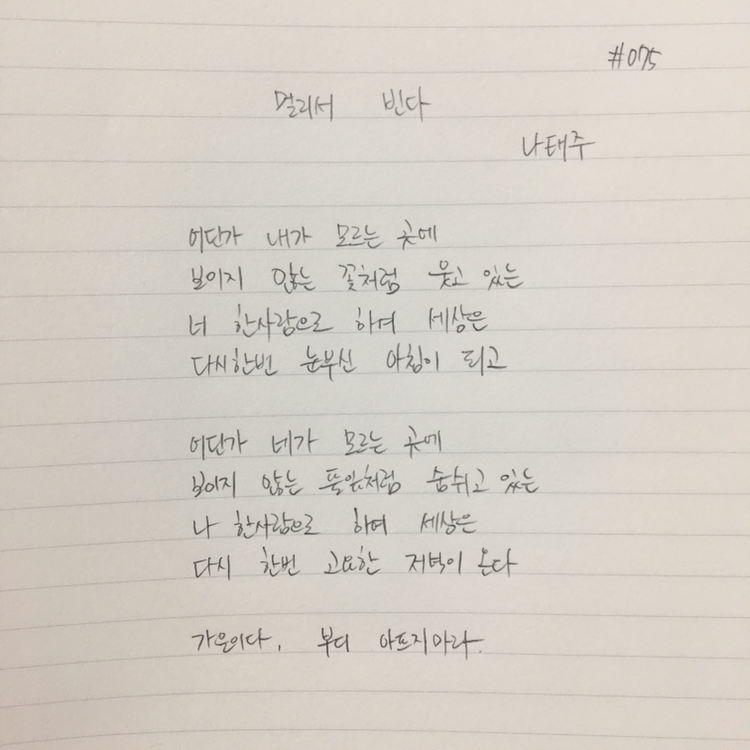 #075
멀리서 빈다
나태주
어딘가 내가 모르는 곳에
보이지 않는 꽃처럼 웃고 있는
너 한사람으로 하여 세상은
다시한번 눈부신 아침이 되고
어딘가 네가 모르는 곳에
보이지 않는 풀잎처럼 숨쉬고 있는
나 한사람으로 하여 세상은
다시 한번 고요한 저녁이 온다
가을이다, 부디 아프지마라.